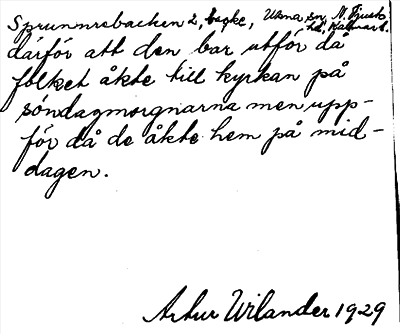 Sprunnrebacken 2, backe, Ukna sn, N. Tjust
hd, Kalmar l.
därför att den bar utför då
folket åkte till kyrkan på
söndagmorgnarna men upp-
för då de åkte hem på mid-
dagen.
Artur Wilander 1929